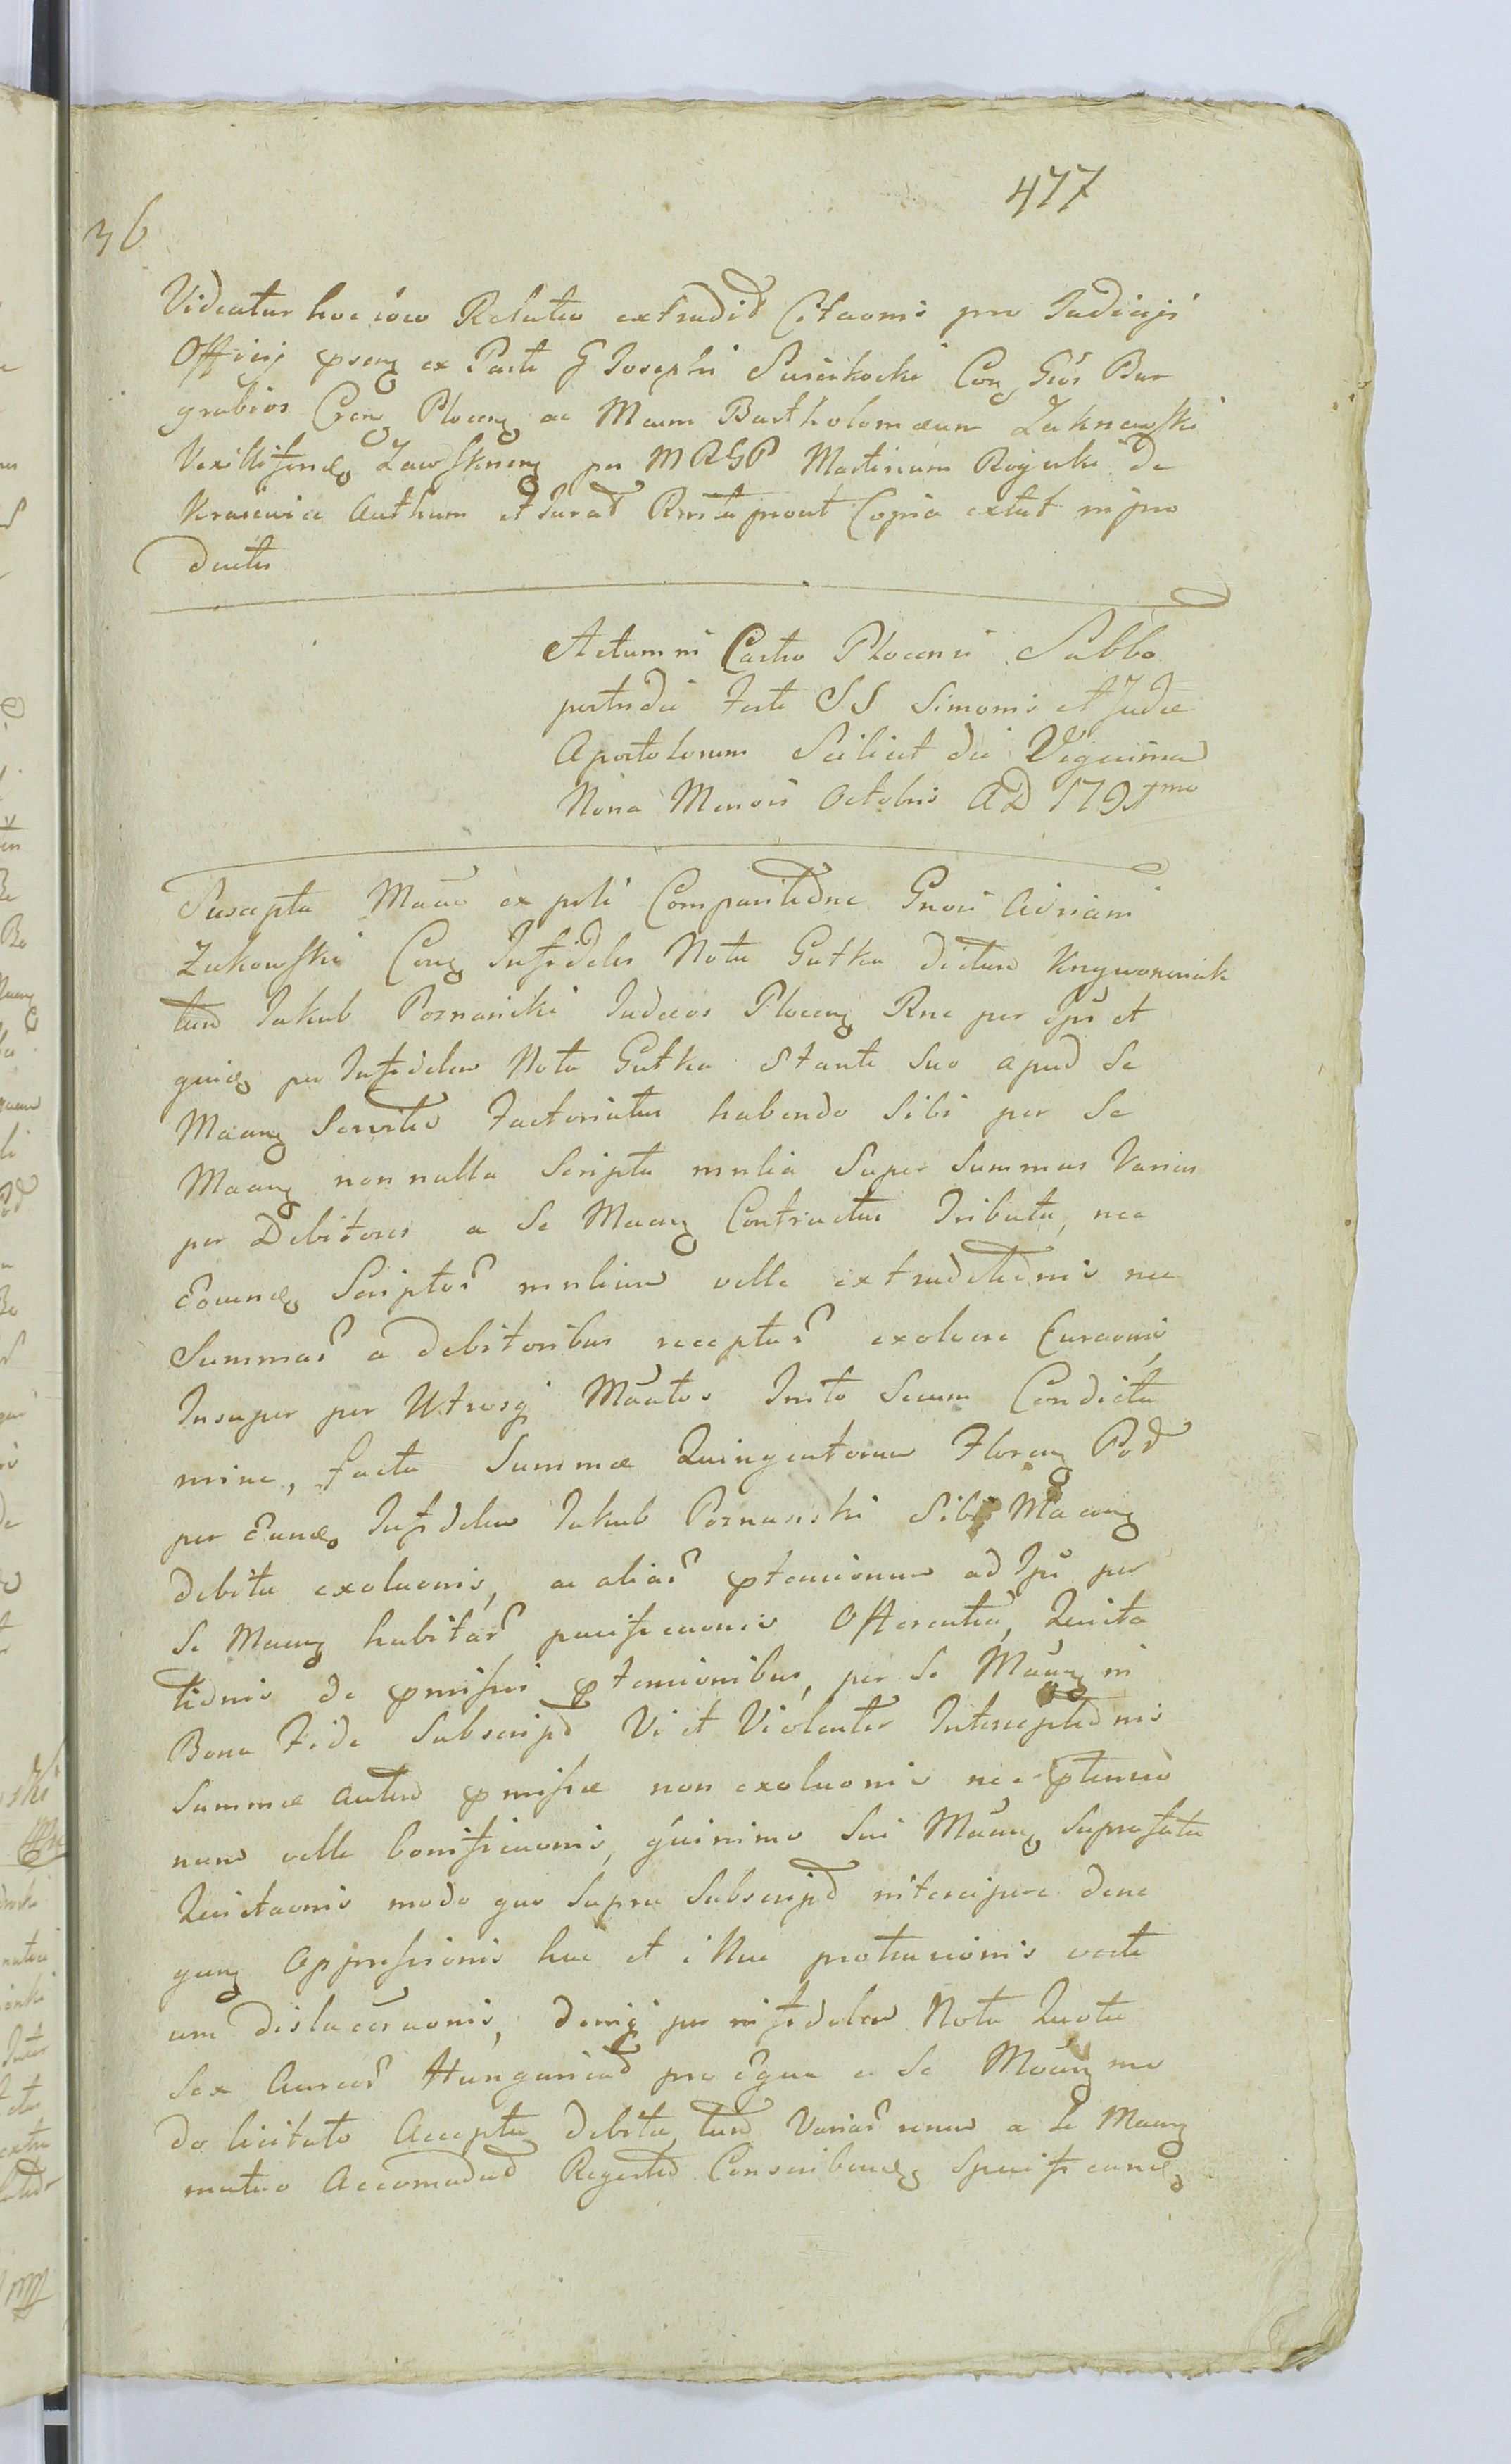 477
36
Videatur hoc ioco Relatio extradit Citaonis pro Judicijs
Officij ex Parte G Josephi Suierkocki Con Gnos Bur
grabios Cren Plocen ac Mcum Bartholomæum Zaknewski
Vexilliferum Zawskrnen per MRGP Martinum Rogulki de
Krasiewice Authum et Jurat prout Copia extat in pro
ductu
Actum in Castro Plocensi Sabbo
postridie Festi SS Simonis et Judæ
Apostolorum Scilicet die Vigesima
Nona Mensis Octobris AD 1791mo
Suscepta Maōō ex pstı Comparitione Gnosi Adriani
Zukowski Cong Infideles Nota Gutka dictum Krywonosick
tum Jakub Poznanski Judæos Plocen Rne per Ips et
quidem per Infidelem Nota Gutka Stante suo apud Se
Maang Servitio Factoriatus habendo Sibi per Se
Maang non nulla Scripta mnlia Super Summas Varias
per Debitores a Se Maang Contractas Tributa, nec
Eorundem Scriptor mnlium velle extraditionis nec
Summar a debitoribus receptar exoluere Curaonis,
Insuper per Utrosq Maatos Inito Secum Condicta
mine, facta Summæ Quingentorum Floren Pol
per Eundem Infidelem Jakub Poznanski Sibi Maang
debita exoluonis, ac aliar ptensionum ad Ips per
Se Maang habitar pacificaonis Offerentia, Quita
tionis de pmissis ptensionibus, per Se Maang in
Bona Fide Subscript Vi et Violenter Interceptionis
Summæ autem pmissæ non exoluonis nec ptensio
num velle bonificaonis, quinimo Sui Maang Suprafata
Quietaonis modo quo Supra Subscript intercipere dene
gang Oppressionis huc et illuc protrusionis vesti
um dislaceraonis, deniq per infidelem Nota Quota
Sex Aureor Hungarical pro Equa a Se Maang mo
do licitato Accepta debita, tum Variar rerum a Se Maang
mutuo Accomodat Regestro Conscribendo Specificand